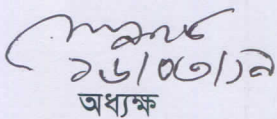 ১৬/০৩/১৯
অধ্যক্ষ